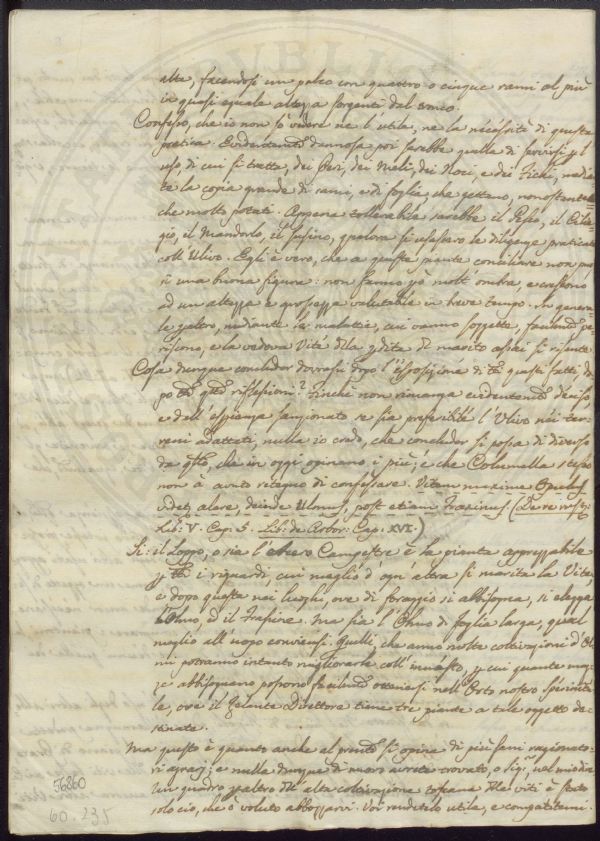 alto, facendosi un palco con quattro o cinque rami al più
in quasi eguale altezza sorgenti dal tronco.
Confesso, che io non sò vedere ne l'utile, ne la nécessità di questa
pratica. Evidentemte dannosa poi sarebbe quella di servirsi pl
uso, di cui si tratta, dei Peri, dei Meli, dei Noci, e dei Fichi, median=
te la copia grande di rami, e di foglie, che gettano, nonostante
che molto potati. Appena tollerabile sarebbe il Pesco, il Cilie=
gio, il Mandorlo, e il Susino, qualora si usassero le diligenze praticate
coll'Ulivo. Egli è vero, che a queste piante conciliare non può
si una buona figura: non fanno pò molt'ombra, e crescono
ad un altezza e grossezza valutabile in breve tempo. In genera=
le pl'altro, mediante le malattie, cui vanno soggette, facilmte pe=
riscono, e la vedova Vite dlla pdita dl marito assai si risente.
Cosa dunque concluder dovrassi dopo l'esposizione di tti questi fatti, do
po tte qste riflessioni? Finchè non rimanga evidentemte deciso,
e dall'esperienza sanzionato se sia preferibile l'Ulivo nei ter=
reni adattati, nulla io credo, che concluder si possa di diverso
da qllo, che in oggi opinano i più; e che Columella stesso
non à avuto ritegno di confessare. Vitem maxime Opulus
videt alere, deinde Ulmus, post etiam Fraxinus (De re rust:
Lib: V. Cap: 5. Lib: de Arbor: Cap: XVI.)
Si: il Loppo, o sia l'Acero Campestre è la pianta apprezzabile
p tti i riguardi, cui meglio d'ogn'altra si marita la Vite,
e dopo questa nei luoghi, ove di foraggio si abbisogna, si elegga
l'Olmo, ò il Frassine. Ma sia l'Olmo di foglia larga, qual
meglio all'uopo conviensi. Quelli che anno molte coltivazioni d'Ol=
mi potranno intanto migliorarle coll'innesto, p cui quante mar=
ze abbisognano possono facilmte ottenersi nell'Orto nostro sperimta
le, ove il Zelante Direttore tiene tre piante a tale oggetto de=
stinate.
Ma questo è quanto anche al presnte si opina dai più sani ragionato=
ri agrarj; e nulla dunque di nuovo avrete trovato, o Sigri, nel mio dire
un quadro pl'altro dll'alta coltivazione toscana dlle viti è stato
solo ciò, che ò voluto abbozzarvi. Voi rendetelo utile, e compatitemi.
56860
60. 235